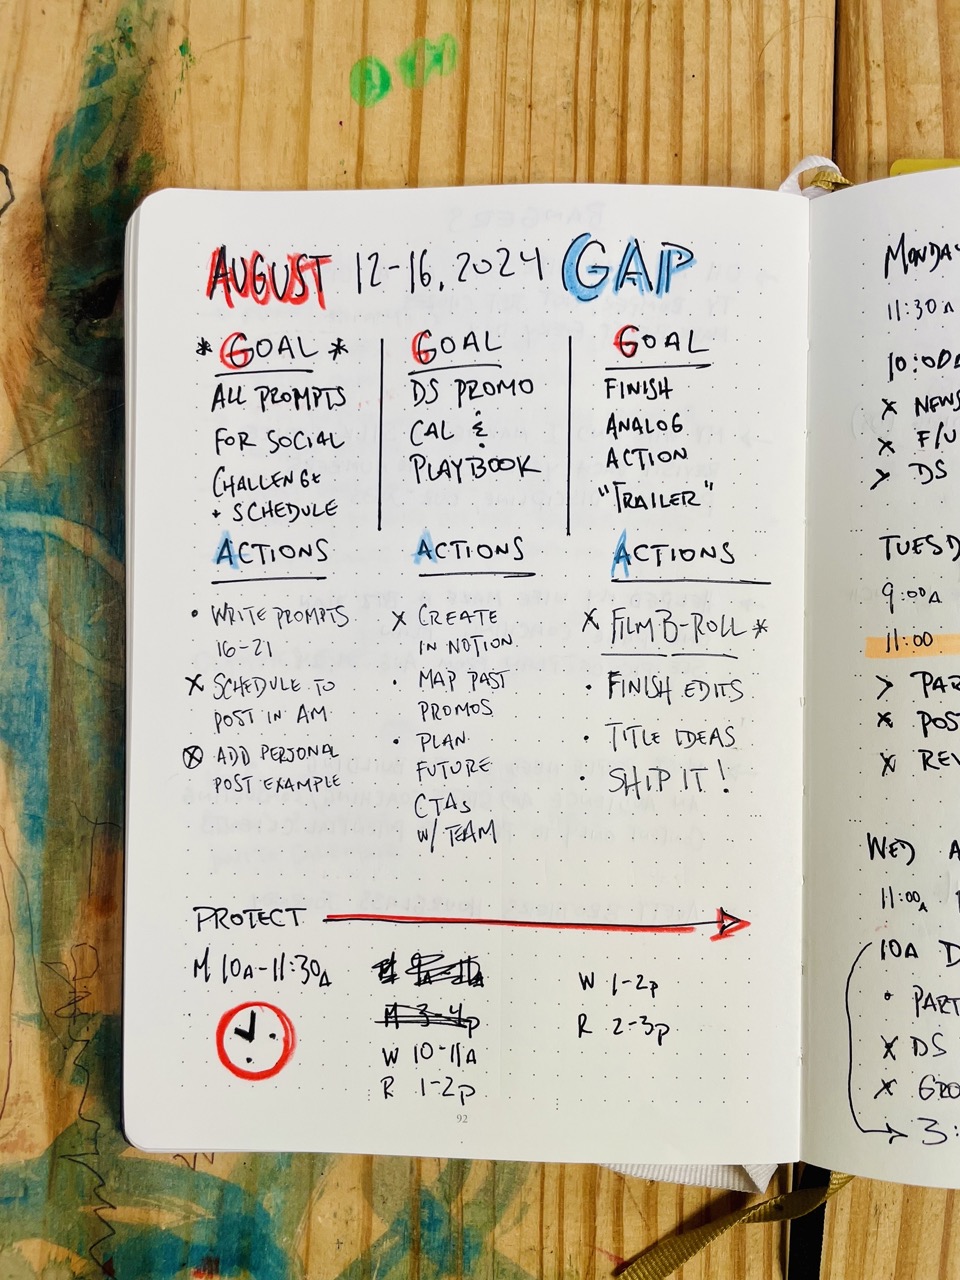 AUGUST 12-16, 2024 GAP
* GOAL *
ALL PROMPTS
FOR SOCIAL
CHALLENGE
+ SCHEDULE
ACTIONS
• WRITE PROMPTS
16-21
X SCHEDULE TO
POST IN AM
ⓧ ADD PERSONAL
POST EXAMPLE
GOAL
DS PROMO
CAL &
PLAYBOOK
ACTIONS
X CREATE
IN NOTION
• MAP PAST
PROMOS
• PLAN
FUTURE
CTAs
W/ TEAM
GOAL
FINISH
ANALOG
ACTION
"TRAILER"
ACTIONS
X FILM B-ROLL *
• FINISH EDITS
• TITLE IDEAS
• SHIP IT!
PROTECT
M 10A-11:30A
M 3-4p
W 10-11A
R 1-2p
W 1-2p
R 2-3p
92
MONDAY
11:30A
10:00A
X NEWS
X F/U
> DS
TUESD
9:00A
11:00
> PAR
X POS
X REV
WED A
11:00A
10A D
• PART
X DS
X GRO
3: